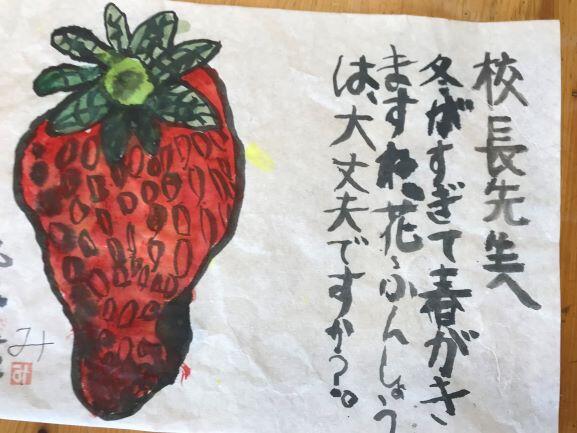 校長先生へ
冬がすぎて春がき
ますね、花ふんしょう
は、大丈夫ですか?。
み
み